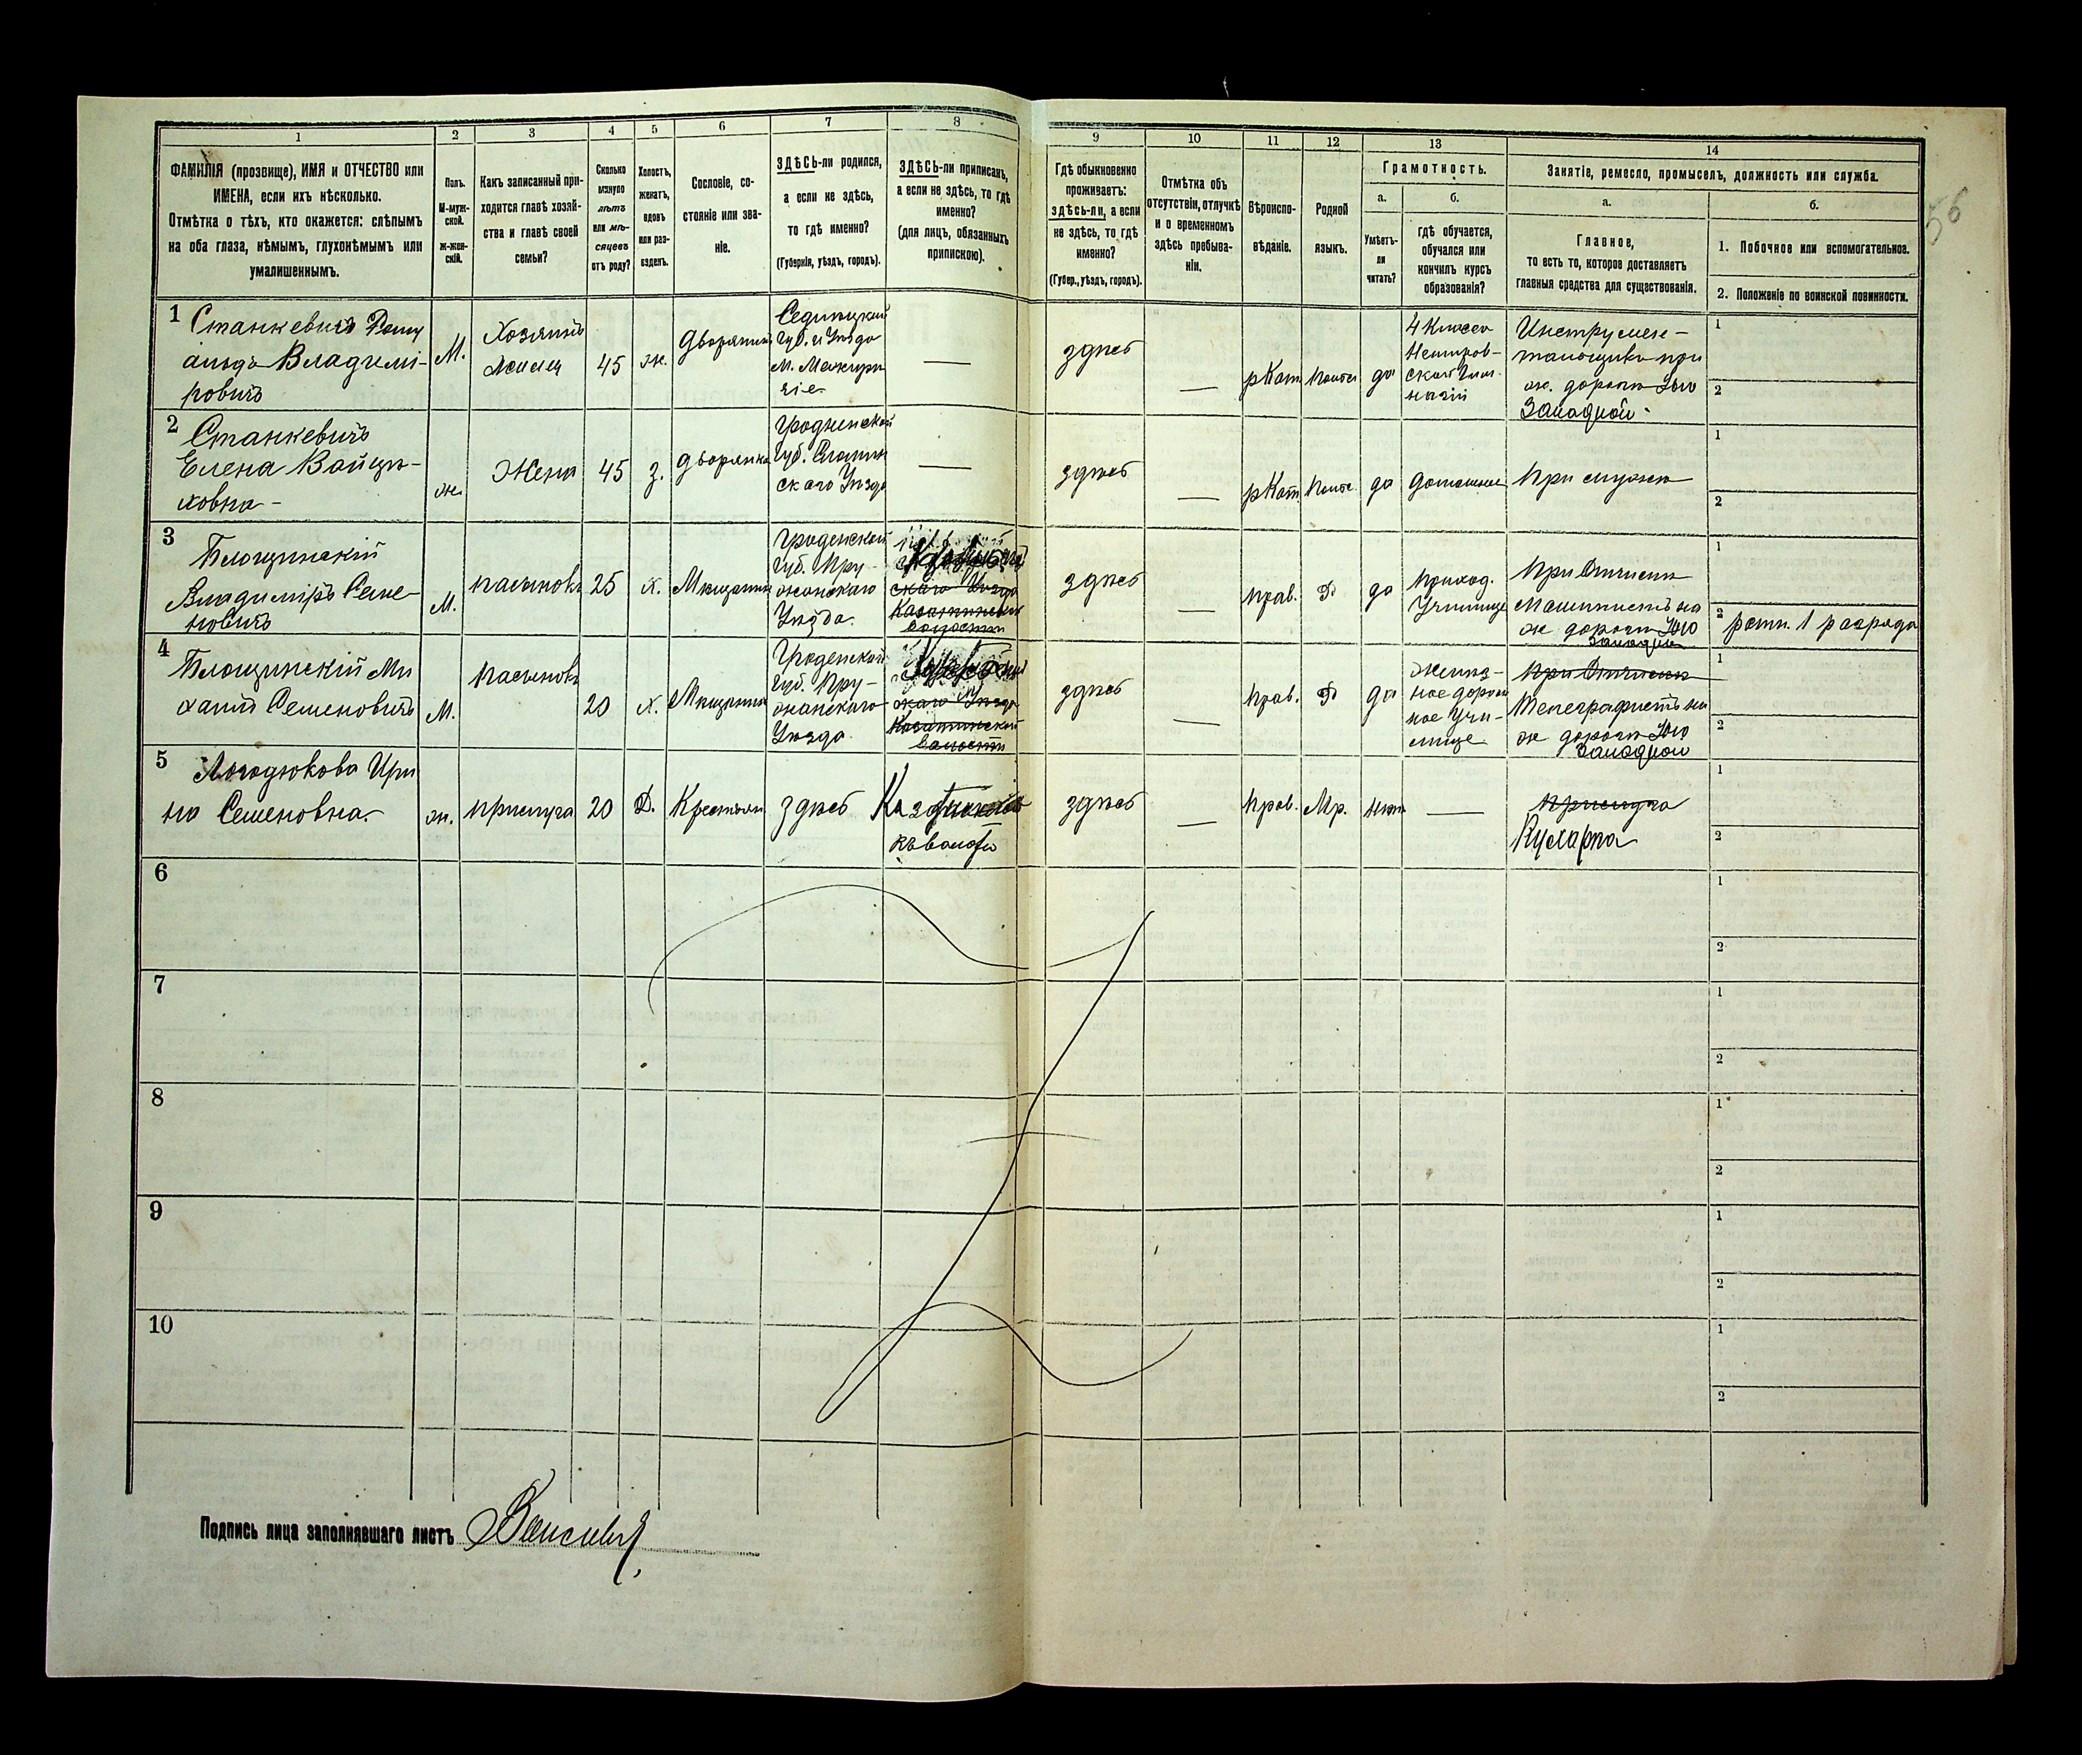 1 2 3 4 5 6 7 8 9 10 11 12 13 14
ФАМИЛІЯ (прозвище), ИМЯ и ОТЧЕСТВО или
ИМЕНА, если ихъ нѣсколько.
Отмѣтка о тѣхъ, кто окажется: слѣпымъ
на оба глаза, нѣмымъ, глухонѣмымъ или
умалишеннымъ.
Полъ.
М-муж-
ской.
ж-жен-
скій.
Какъ записанный при-
ходится главѣ хозяй-
ства и главѣ своей
семьи?
Сколько
минуло
лѣтъ
или мѣ-
сяцевъ
отъ роду?
Холостъ,
женатъ,
вдовъ
или раз-
веденъ.
Сословіе, со-
стояніе или зва-
ніе.
ЗДѢСЬ-ли родился,
а если не здѣсь,
то гдѣ именно?
(Губернія, уѣздъ, городъ).
ЗДѢСЬ-ли приписанъ,
а если не здѣсь, то гдѣ
именно?
(для лицъ, обязанныхъ
припискою).
Гдѣ обыкновенно
проживаетъ:
здѣсь-ли, а если
не здѣсь, то гдѣ
именно?
(Губер., уѣздъ, городъ).
Отмѣтка объ
отсутствіи, отлучкѣ
и о временномъ
здѣсь пребыва-
ніи.
Вѣроиспо-
вѣданіе.
Родной
языкъ.
Грамотность.
а.
Умѣетъ-
ли
читать?
б.
гдѣ обучается,
обучался или
кончилъ курсъ
образованія?
Занятіе, ремесло, промыселъ, должность или служба.
а.
Главное,
то есть то, которое доставляетъ
главныя средства для существованія.
б.
1. Побочное или вспомогательное.
2. Положеніе по воинской повинности.
56
1
Станкевичъ
Владимі-
ровичъ
М.
Хозяинъ
45
ж.
Дворянинъ
Губ. и Уѣзда
—
здѣсь
—
рКат
да
4 Класса
Инструмен-
тальщика при
ж. дороги Юго
Западной
1
2
2
Станкевичъ
Елена Войцѣ-
ховна
ж.
Жена
45
з.
дворянка
Гродненской
Губ. Слоним
скаго Уѣзда
—
здѣсь
—
рКат
да
домашнее
при мужѣ
1
2
3
Владиміръ Семе-
новичъ
М.
пасынокъ
25
х.
Мѣщанинъ
Гроденской
Губ. Пру-
жанскаго
Уѣзда.
скаго Уѣзда
волости
здѣсь
—
прав.
да
приход.
Училище
При Отчимѣ
Машинистъ на
ж дороги Юго
Западной
1
2 ратн. 1 разряда
4
Ми
хаилъ Семеновичъ
М.
пасынокъ
20
х.
Мѣщанинъ
Гроденской
Губ. Пру-
жанскаго
Уѣзда
скаго Уѣзда
волости
здѣсь
—
прав.
да
Желѣз-
ное дорож
ное Учи-
лище
При Отчимѣ
Телеграфистъ на
ж дороги Юго
Западной
1
2
5
Ири
на Семеновна
ж.
прислуга
20
Д.
Крестьян
здѣсь
здѣсь
—
прав.
Мр.
нѣт
—
прислуга
Кухарка
1
2
6
1
2
7
1
2
8
1
2
9
1
2
10
1
2
Подпись лица заполнявшаго листъ